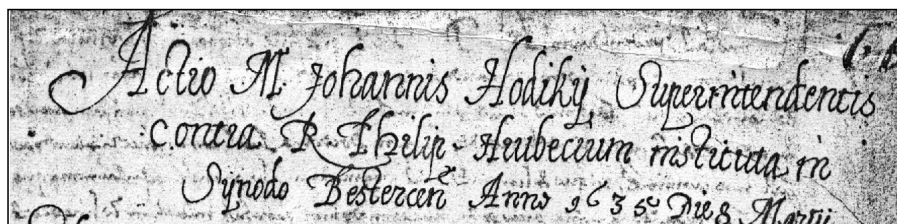 Actio M Johannis Hodikÿ Superintendentis
contra R. Philip. Hrubecium instituta in
Synodo Bestercen̄ Anno 1635. Die 8 Martii